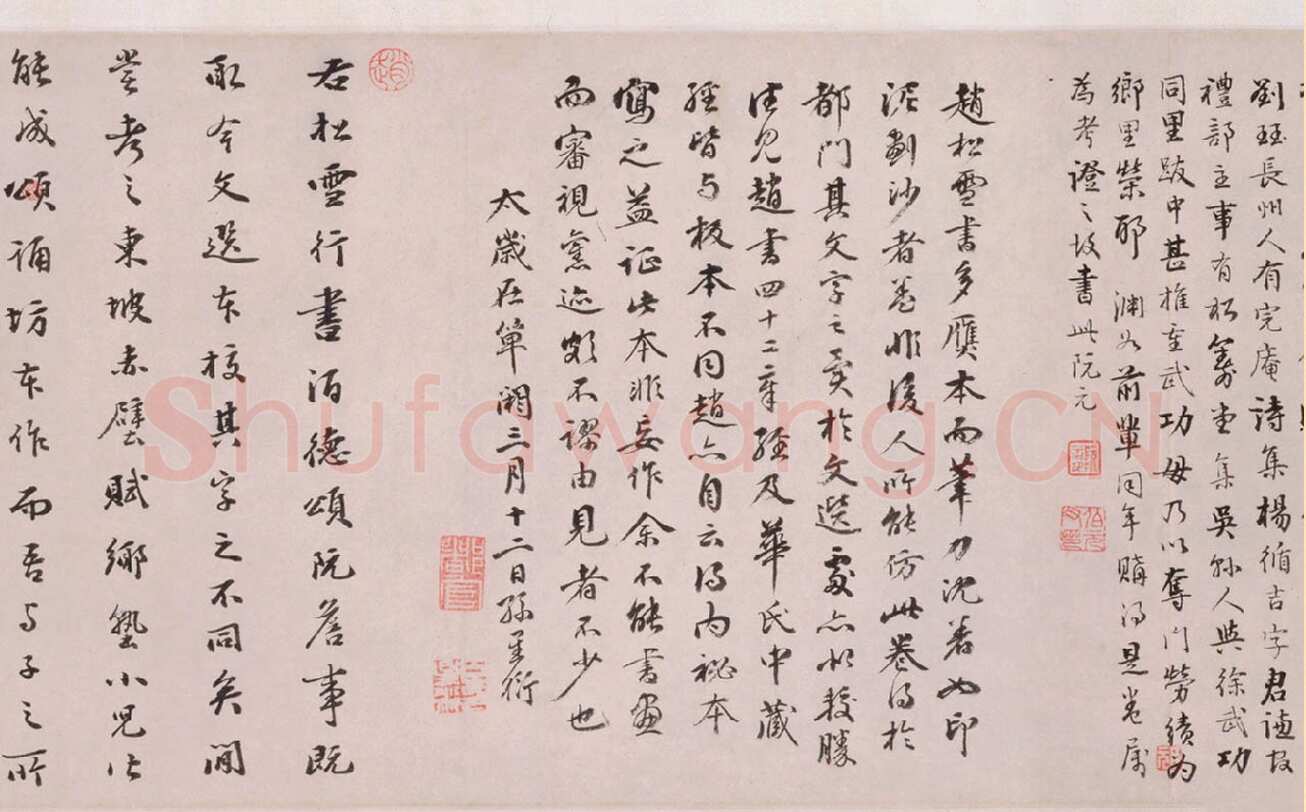 劉珏長州人有完庵詩集楊循吉字君謙官
禮部主事有松籌堂集吳縣人與徐武功
同里跋中甚推重武功毋乃以奪門勞績為
鄉里榮耶淵如前輩同年購得是卷屬
為考證之故書此阮元
趙松雪書多贗本而筆力沈著如印
泥劃沙者差非後人所能仿此卷得於
都門其文字之異於文選處亦以較勝
往見趙書四十二章經及華氏中藏
經皆与板本不同趙亦自云得内祕本
寫之益证此本非妄作余不能書畫
而審視舊迹頗不謬由見者不少也
太歲在單閼三月十二日孫星衍
右松雪行書酒德頌阮詹事既
取今文選本校其字之不同矣間
嘗考之東坡赤壁賦鄉塾小兒皆
能成頌誦坊本作而吾与子之所
Shufawang.CN